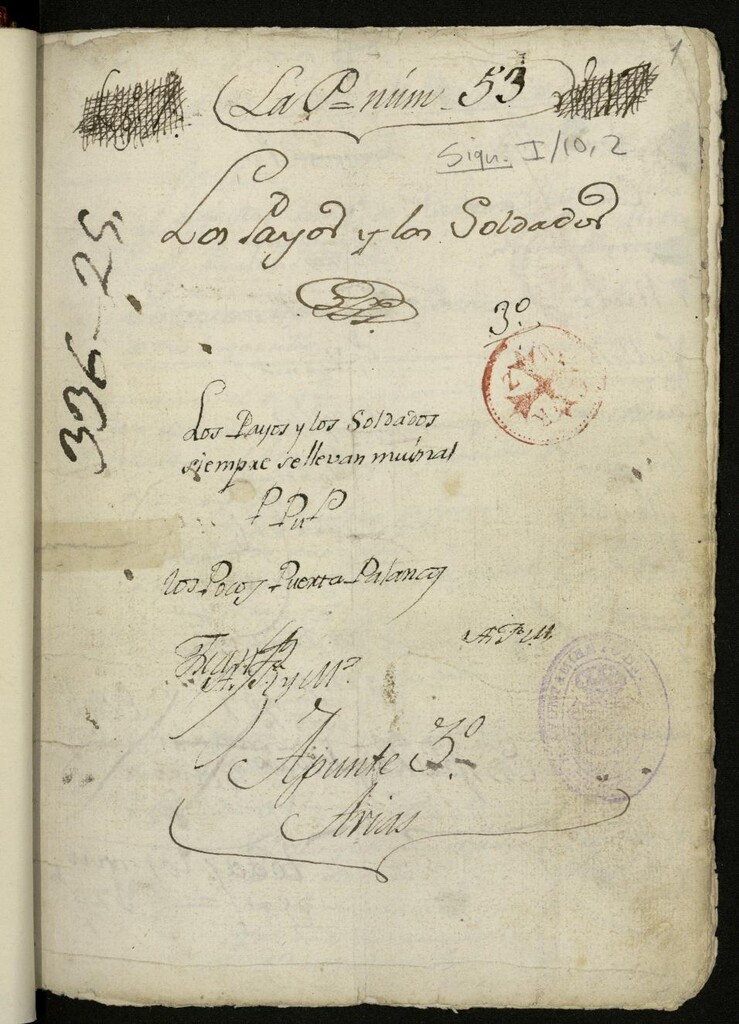 1
La P= núm 53
Sign. I/10,2
Los Payos y los Soldados
3º
336-25
Los Payos y los Soldados
siempre se llevan mui mal
P PuP
los Pocos Puerta Palancos
Apunte 3º
Arias